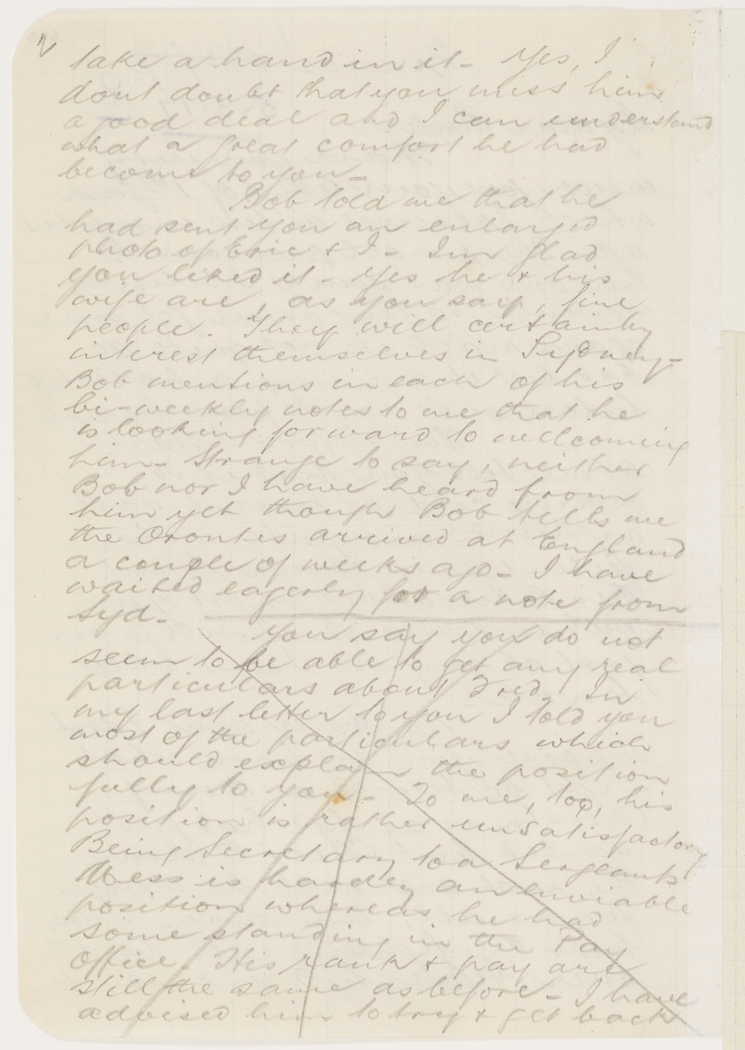 2
take a hand in it - Yes, I
dont doubt that you miss him
a good deal and I can understand
what a great comfort he had
become to you -
Bob told me that he
had sent you an enlarged
photo of Eric & I - Im glad
you liked it - Yes he & his
wife are, as you say, fine
people. They will certainly
interest themselves in Sydney -
Bob mentions in each of his
bi-weekly notes to me that he
is looking forward to wellcoming
him - Strange to say, neither
Bob nor I have heard from
him yet though Bob tells me
the Orontes arrived at England
a couple of weeks ago - I have
waited eagerly for a note from
Syd.
You say you do not
seem to be able to get any real
particulars about Fred. In
my last letter to you I told you
most of the particulars which
should explain the position
fully to you - To me, too, his
position is rather unsatisfactory
Being Secretary to a Sergeants
Mess is hardley an enviable
position whereas he had
some standing in the Pay
Office. His rank & pay are
still the same as before - I have
advised him to try & get back